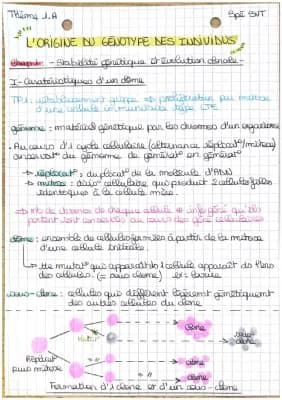 Thème 1.A
Spé SVT
"L'ORIGINE DU GÉNOTYPE DES INDIVIDUS"
- Stabilité génétique et évolution clonale -
I - Caractéristiques d'un clone
TP1: établissement grippe => prolifération par mitose
d'une cellule immunitaire type LT8
génome: matériel génétique par les chromes d'un organisme
Au cours d'1 cycle cellulaire (alternance réplicat°/mitose)
conservat° du génome de générat° en générat°
-> réplicat°: duplicat° de la molécule d'ADN
-> mitose: divis° cellulaire qui produit 2 cellules filles
identiques à la cellule mère.
=> nb de chromes de chaque cellule + info génét qu'ils
portent sont conservés au cours des géné cellulaires
clone: ensemble de cellules formées à partir de la mitose
d'une cellule initiale
-> Une mutat° qui apparaît 1 cellule apparaît ds tters
des cellules. (= sous clone)
sous-clone: cellules qui diffèrent légèremt génétiquement
des autres cellules du clone
clone
Mutat°
sous-clone
clone
Réplicat°
puis mitose
clone
Formation d'1 clone et d'un sous-clone